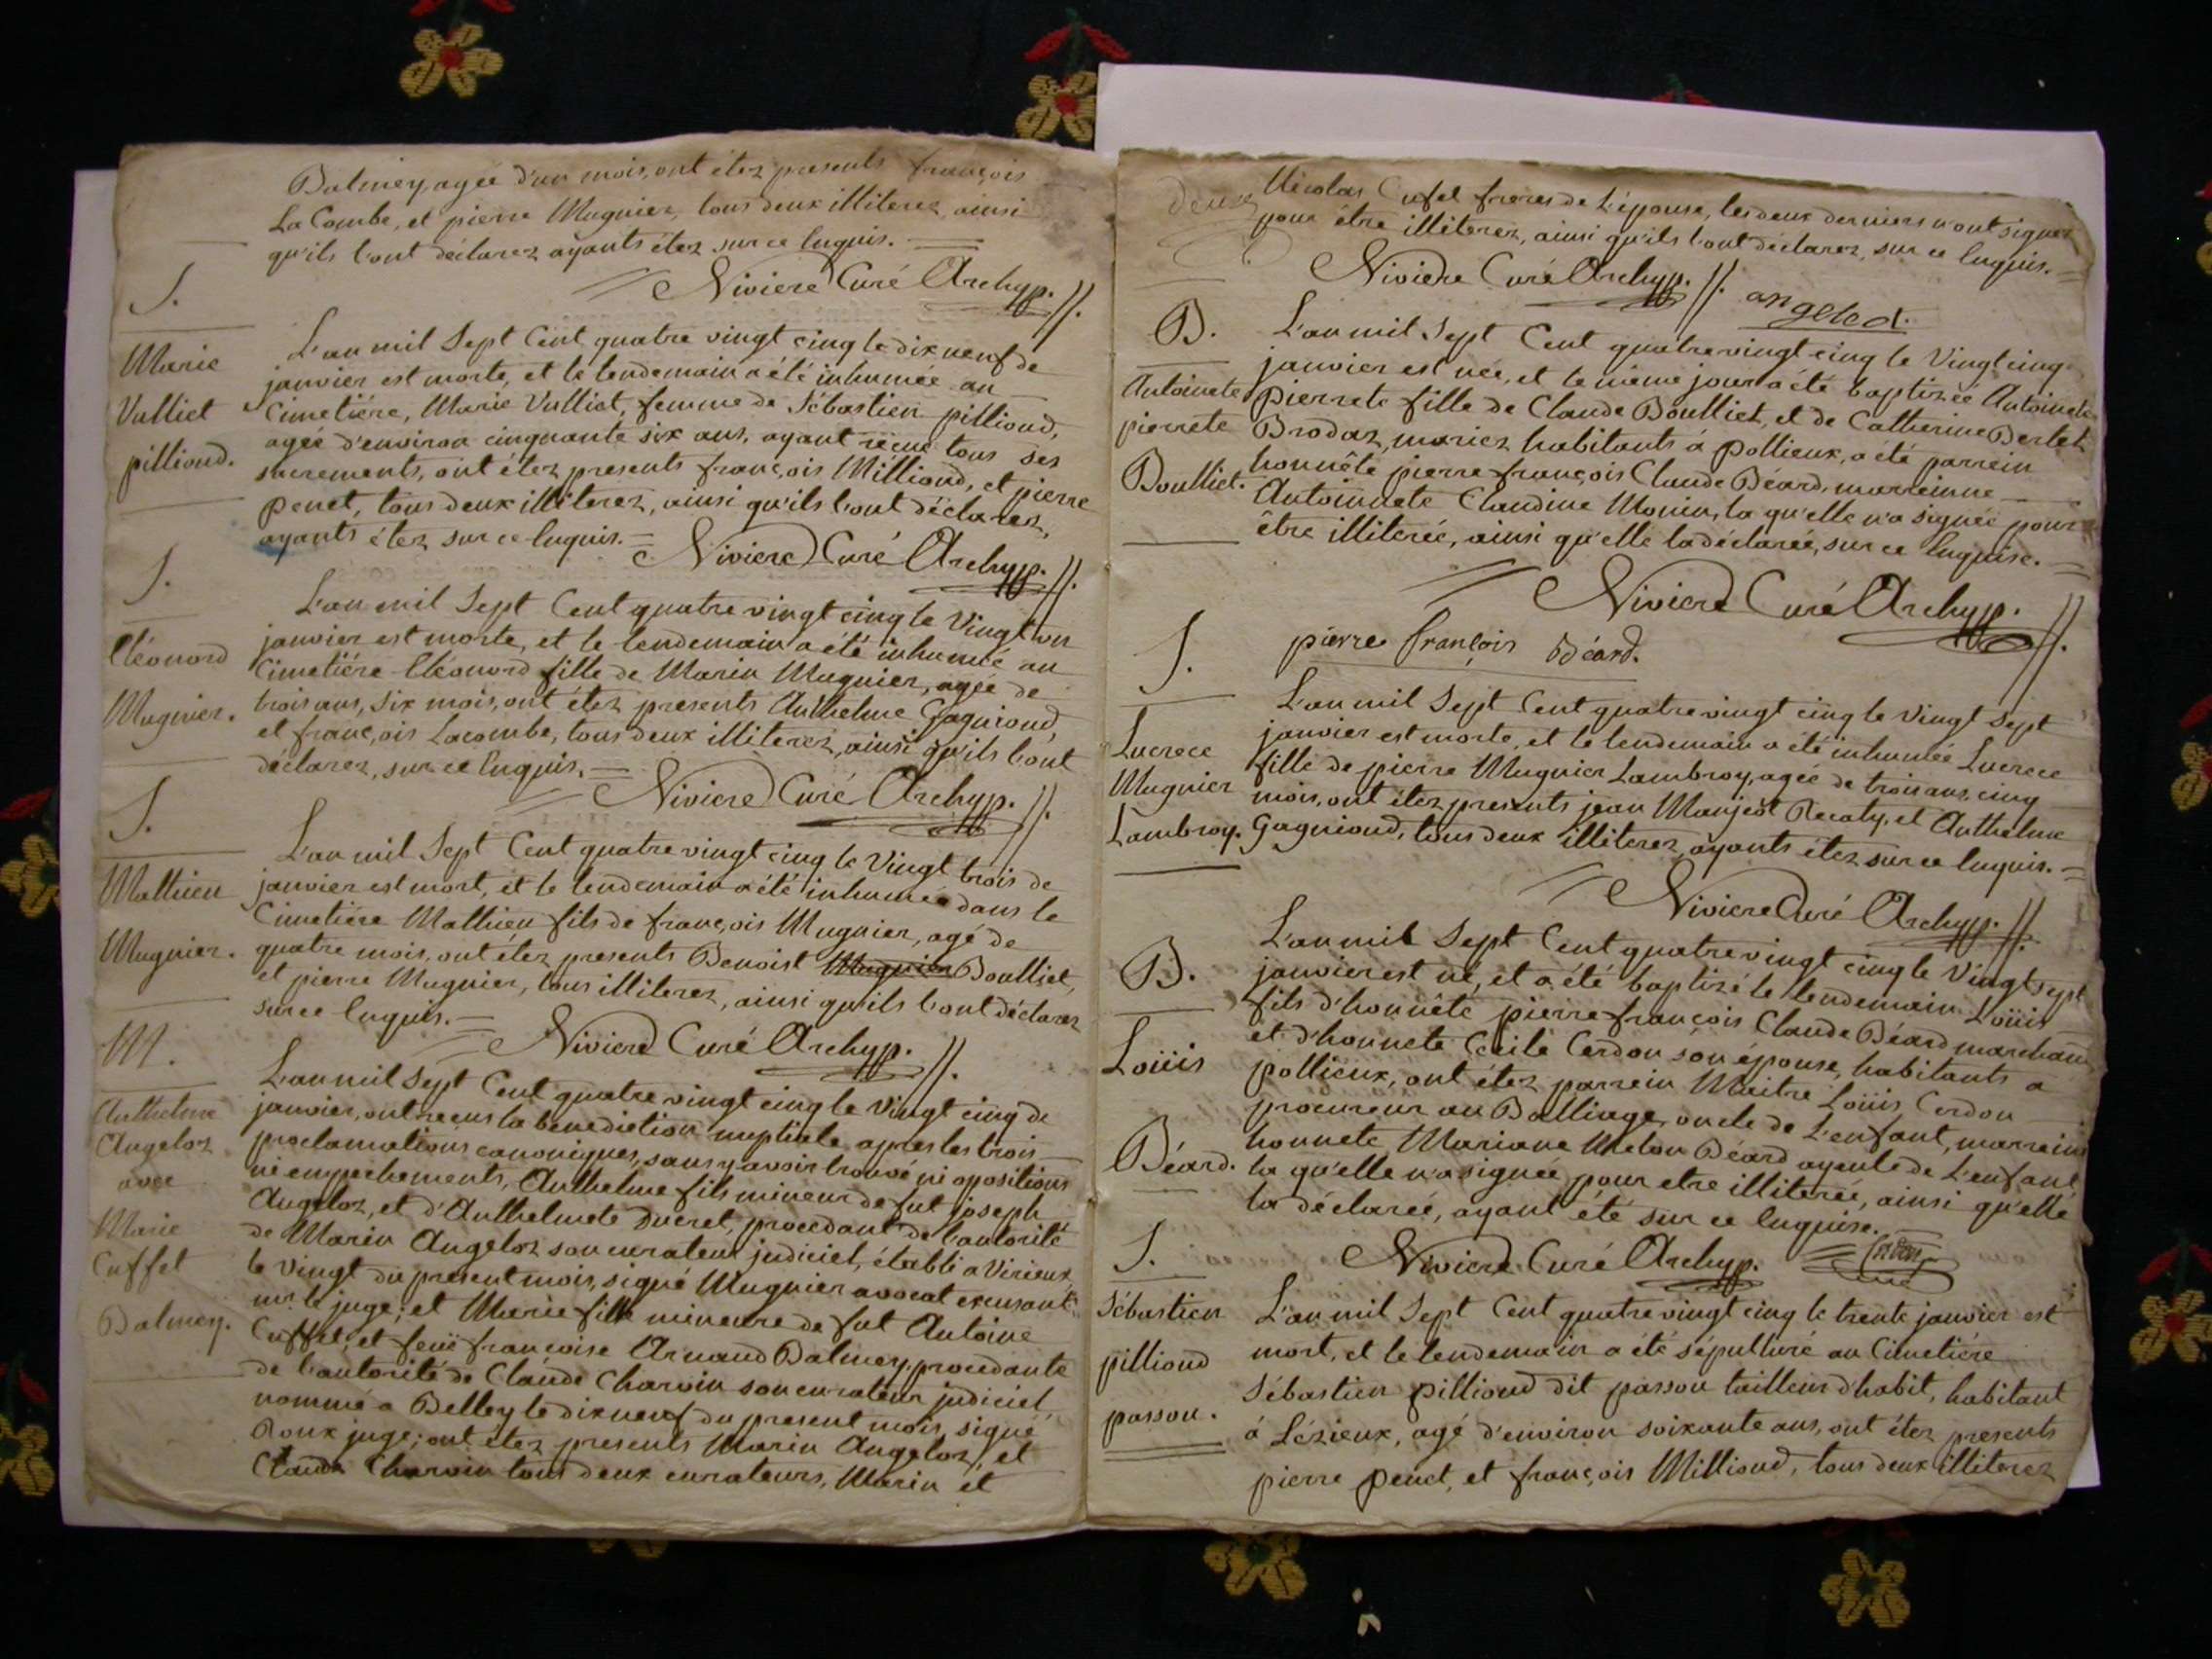 Balmey, agée d'un mois, ont étez presents françois
La Combe, et pierre Mugnier, tous deux illiterez, ainsi
qu'ils l'ont déclarez ayants étez sur ce enquis.
Niviere Curé Archyp.
S.
Marie
Vulliet
pilliond.
L'an mil Sept Cent quatre vingt cinq le dix neuf de
janvier est morte, et le lendemain a été inhumée au
Cimetiére, Marie Vulliet, femme de Sébastien pilliond,
agée d'environ cinquante six ans, ayant reçue tous ses
sacrements, ont étez presents françois Milliond, et pierre
penet, tous deux illiterez, ainsi qu'ils l'ont déclarez,
ayants étez sur ce enquis.
Niviere Curé Archyp.
S.
Eléonord
Mugnier.
L'an mil Sept Cent quatre vingt cinq le Vingt un
janvier est morte, et le lendemain a été inhumée au
Cimetiére Eléonord fille de Marin Mugnier, agée de
trois ans, six mois, ont étez presents Anthelme Gagniond,
et françois Lacombe, tous deux illiterez, ainsi qu'ils l'ont
déclarez, sur ce enquis.
Niviere Curé Archyp.
S.
Mathieu
Mugnier.
L'an mil Sept Cent quatre vingt cinq le Vingt trois de
janvier est mort, et le lendemain a été inhumée dans le
Cimetiére Mathieu fils de françois Mugnier, agé de
quatre mois, ont étez presents Benoist Mugnier Boulliet,
et pierre Mugnier, tous illiterez, ainsi qu'ils l'ont déclarez
sur ce enquis.
Niviere Curé Archyp.
M.
Anthelme
Angeloz
avec
Marie
Cuffet
Balmey.
L'an mil Sept Cent quatre vingt cinq le Vingt cinq de
janvier, ont reçus la bénédiction nuptiale après les trois
proclamations canoniques, sans y avoir trouvé ni opositions
ni empechements, Anthelme fils mineur de fut joseph
Angeloz, et d'Anthelmete Ducret, procedant de l'autorité
de Marin Angeloz son curateur judiciel, établi a Virieux
le vingt du present mois, signé Mugnier avocat excusant
mr. le juge; et Marie fille mineure de fut Antoine
Cuffet, et feüe françoise Arnaud Balmey, procedante
de l'autorité de Claude Charvin son curateur judiciel
nommé a Belley le dix neuf du present mois, signé
Roux juge; ont étez presents Marin Angeloz, et
Claude Charvin tous deux curateurs, Marin et
deux
Nicolas Cufet freres de L'épouse, les deux derniers n'ont signez
pour être illiterez, ainsi qu'ils l'ont déclarez, sur ce enquis.
Niviere Curé Archyp.
angelod.
B.
Antoinete
pierrete
Boulliet.
L'an mil Sept Cent quatre vingt cinq le Vingt cinq
janvier est née, et le même jour a été baptizée Antoinete
pierrete fille de Claude Boulliet, et de Catherine Bertet
Brodaz, mariez habitants á pollieux, a été parrein
honnête pierre françois Claude Béard, marreinne
Antoinnete Claudine Monin, la qu'elle n'a signée pour
être illiterée, ainsi qu'elle la déclarée, sur ce enquise.
Niviere Curé Archyp.
pierre françois Béard.
S.
Lucrece
Mugnier
Lambroy.
L'an mil Sept Cent quatre vingt cinq le Vingt Sept
janvier est morte, et le lendemain a été inhumée Lucrece
fille de pierre Mugnier Lambroy, agée de trois ans, cinq
mois, ont étez presents jean Manjeot Recaty, et Anthelme
Gagniond, tous deux illiterez, ayants étez sur ce enquis.
Niviere Curé Archyp.
B.
Loüis
Béard.
L'an mil Sept Cent quatre vingt cinq le Vingt sept
janvier est né, et a été baptizé le lendemain Loüis
fils d'honnête pierre françois Claude Béard marchand
et d'honnete Cecile Cerdon son épouse, habitants a
pollieux, ont étez parrein Maitre Loüis Cerdon
procureur au Balliage, oncle de L'enfant, marreine
honnete Mariane Melon Béard ayeule de L'enfant
la qu'elle n'a signée pour etre illiterée, ainsi qu'elle
la déclarée, ayant été sur ce enquise.
Niviere Curé Archyp. Cerdon
S.
Sébastien
pilliond
passou.
L'an mil Sept Cent quatre vingt cinq le trente janvier est
mort, et le lendemain a été sépulturé au Cimetiére
Sébastien pilliond dit passou tailleur d'habit, habitant
á Lézieux, agé d'environ soixante ans, ont étez presents
pierre penet, et françois Milliond, tous deux illiterez